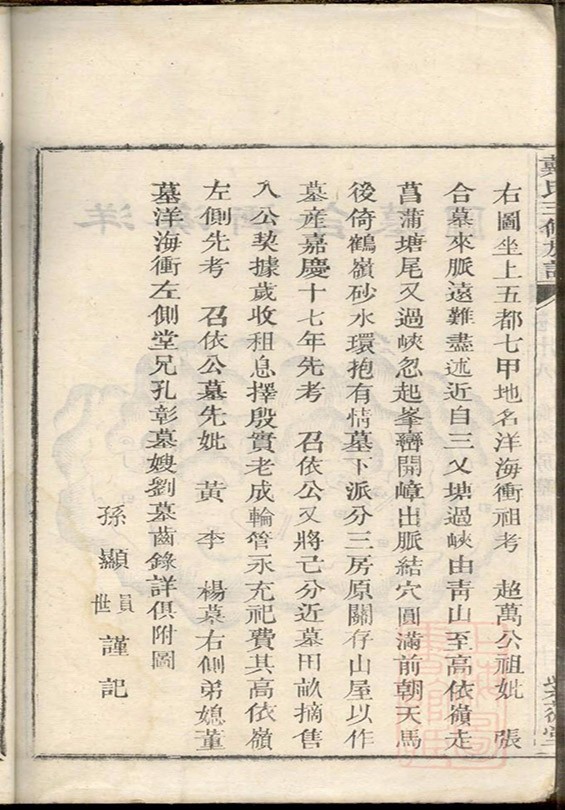 右圖坐上五都七甲地名洋海衝祖考 超萬公祖妣 張
合墓來脈遠難盡述近自三乂塘過峽由青山至高依嶺走
菖蒲塘尾又過峽忽起峯巒開嶂出脈結穴圓滿前朝天馬
後倚鶴嶺砂水環抱有情墓下派分三房原關存山屋以作
墓産嘉慶十七年先考 召依公又將亡分近墓田畝摘售
入公契據歲收租息擇殷實老成輪管永充祀費其高依嶺
左側先考 召依公墓先妣 黃 李 楊墓右側弟媳董
墓洋海衝左側堂兄孔彰墓嫂劉墓齒錄詳俱附圖
孫顯 員 世 謹記
戴氏三修族譜
紫薇堂